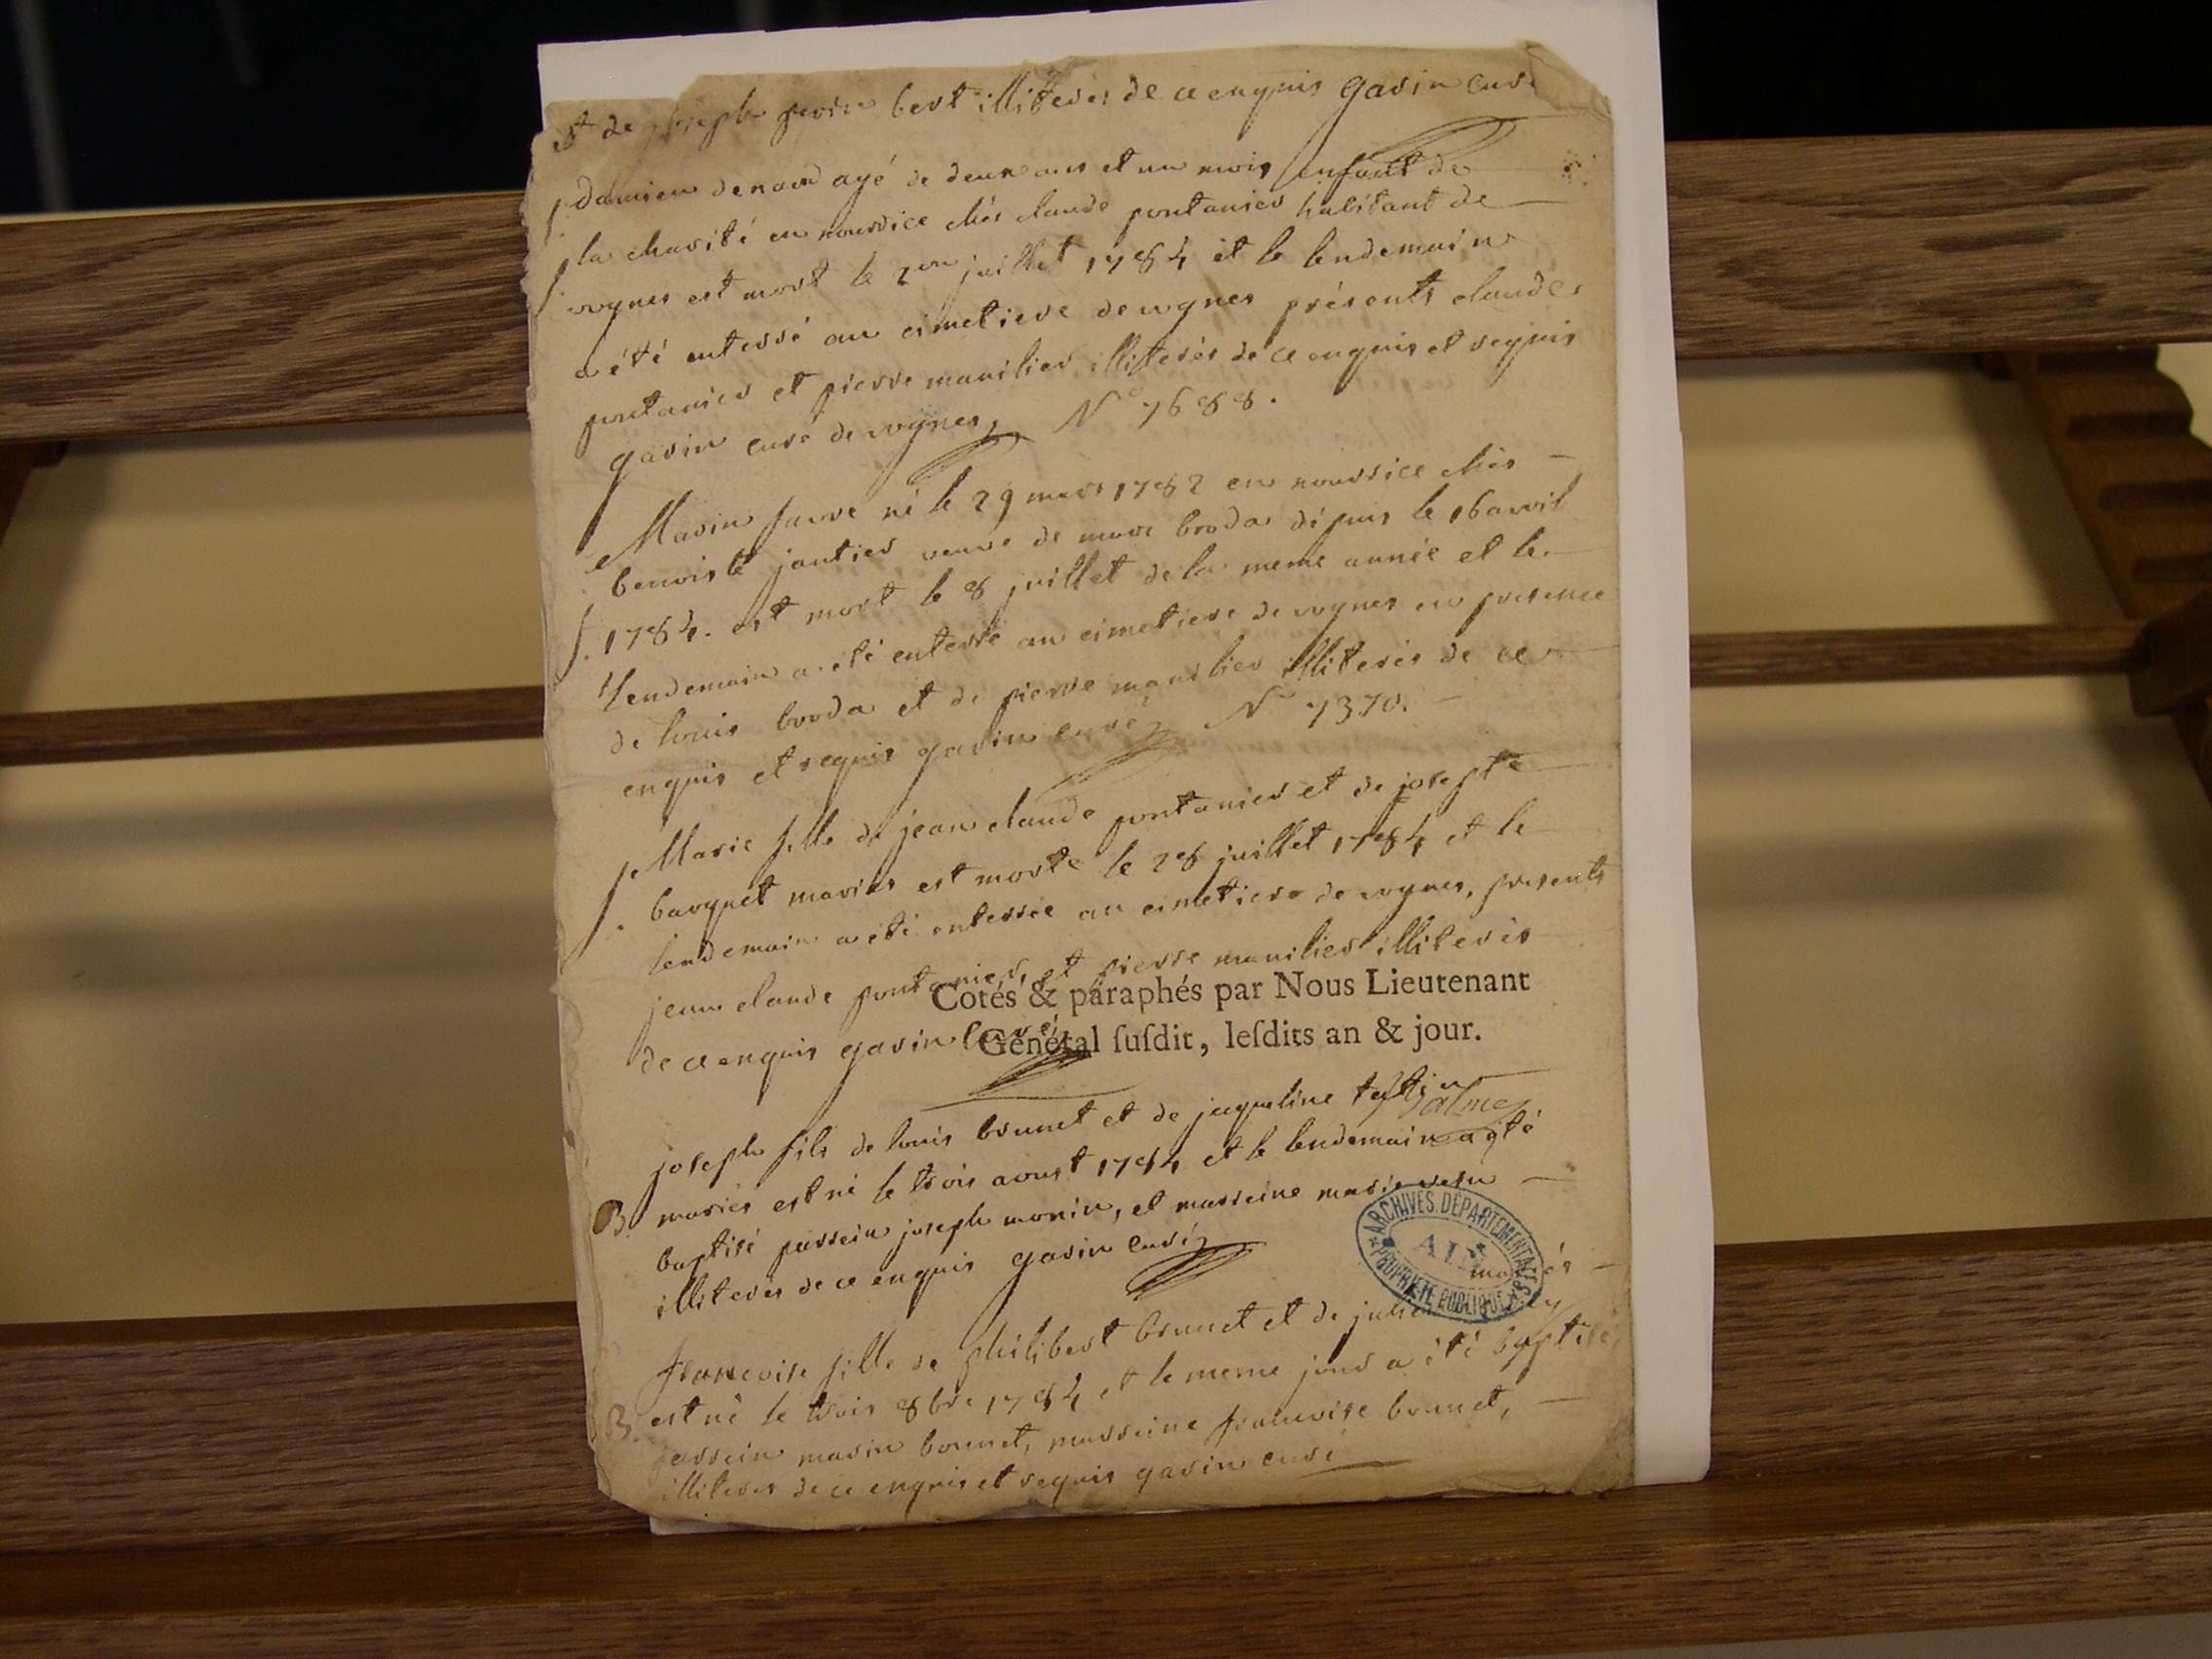 et de joseph perin bert illiterés de ce enquis gavin curé
S. damien denoud agé de deux ans et un mois enfant de
la charité en nourrice chés claude pontanier habitant de
S. vognes est mort le 2em juillet 1784 et le lendemain
a été enterré au cimetiere de vognes présents claude
pontanier et pierre manilier illiterés de ce enquis et requis
gavin curé de vognes N° 7688.
Marin faure né le 29 mars 1782 en nourrice chés
benoiste jantier veuve de marc broda dépuis le 16 avril
S. 1784. est mort le 8 juillet de la meme année et le
lendemain a été enterré au cimetiere de vognes en presence
de louis broda et de pierre manilier illiterés de ce
enquis et requis gavin curé N° 7370.
S. Marie fille de jean claude pontanier et de josepte
barquet mariés est morte le 28 juillet 1784 et le
lendemain a été enterrée au cimetiere de vognes, presents
jean claude pontanier, et pierre manilier illiterés
de ce enquis gavin curé
Cotés & paraphés par Nous Lieutenant
Général ſuſdit, leſdits an & jour.
joseph fils de louis brunet et de jaqueline
B. mariés est né le trois aoust 1784 et le lendemain a eté
baptisé parrein joseph monin, et marreine marie
illiterés de ce enquis gavin curé
ARCHIVES DÉPARTEMENTALES
AIN
PROPRIÉTÉ PUBLIQUE
francoise fille de philibert brunet et de mariés
B. est né le trois 8bre 1784 et le meme jour a été baptisé,
parrein marin bonnet, marreine francoise brunet,
illiterés de ce enquis et requis gavin curé